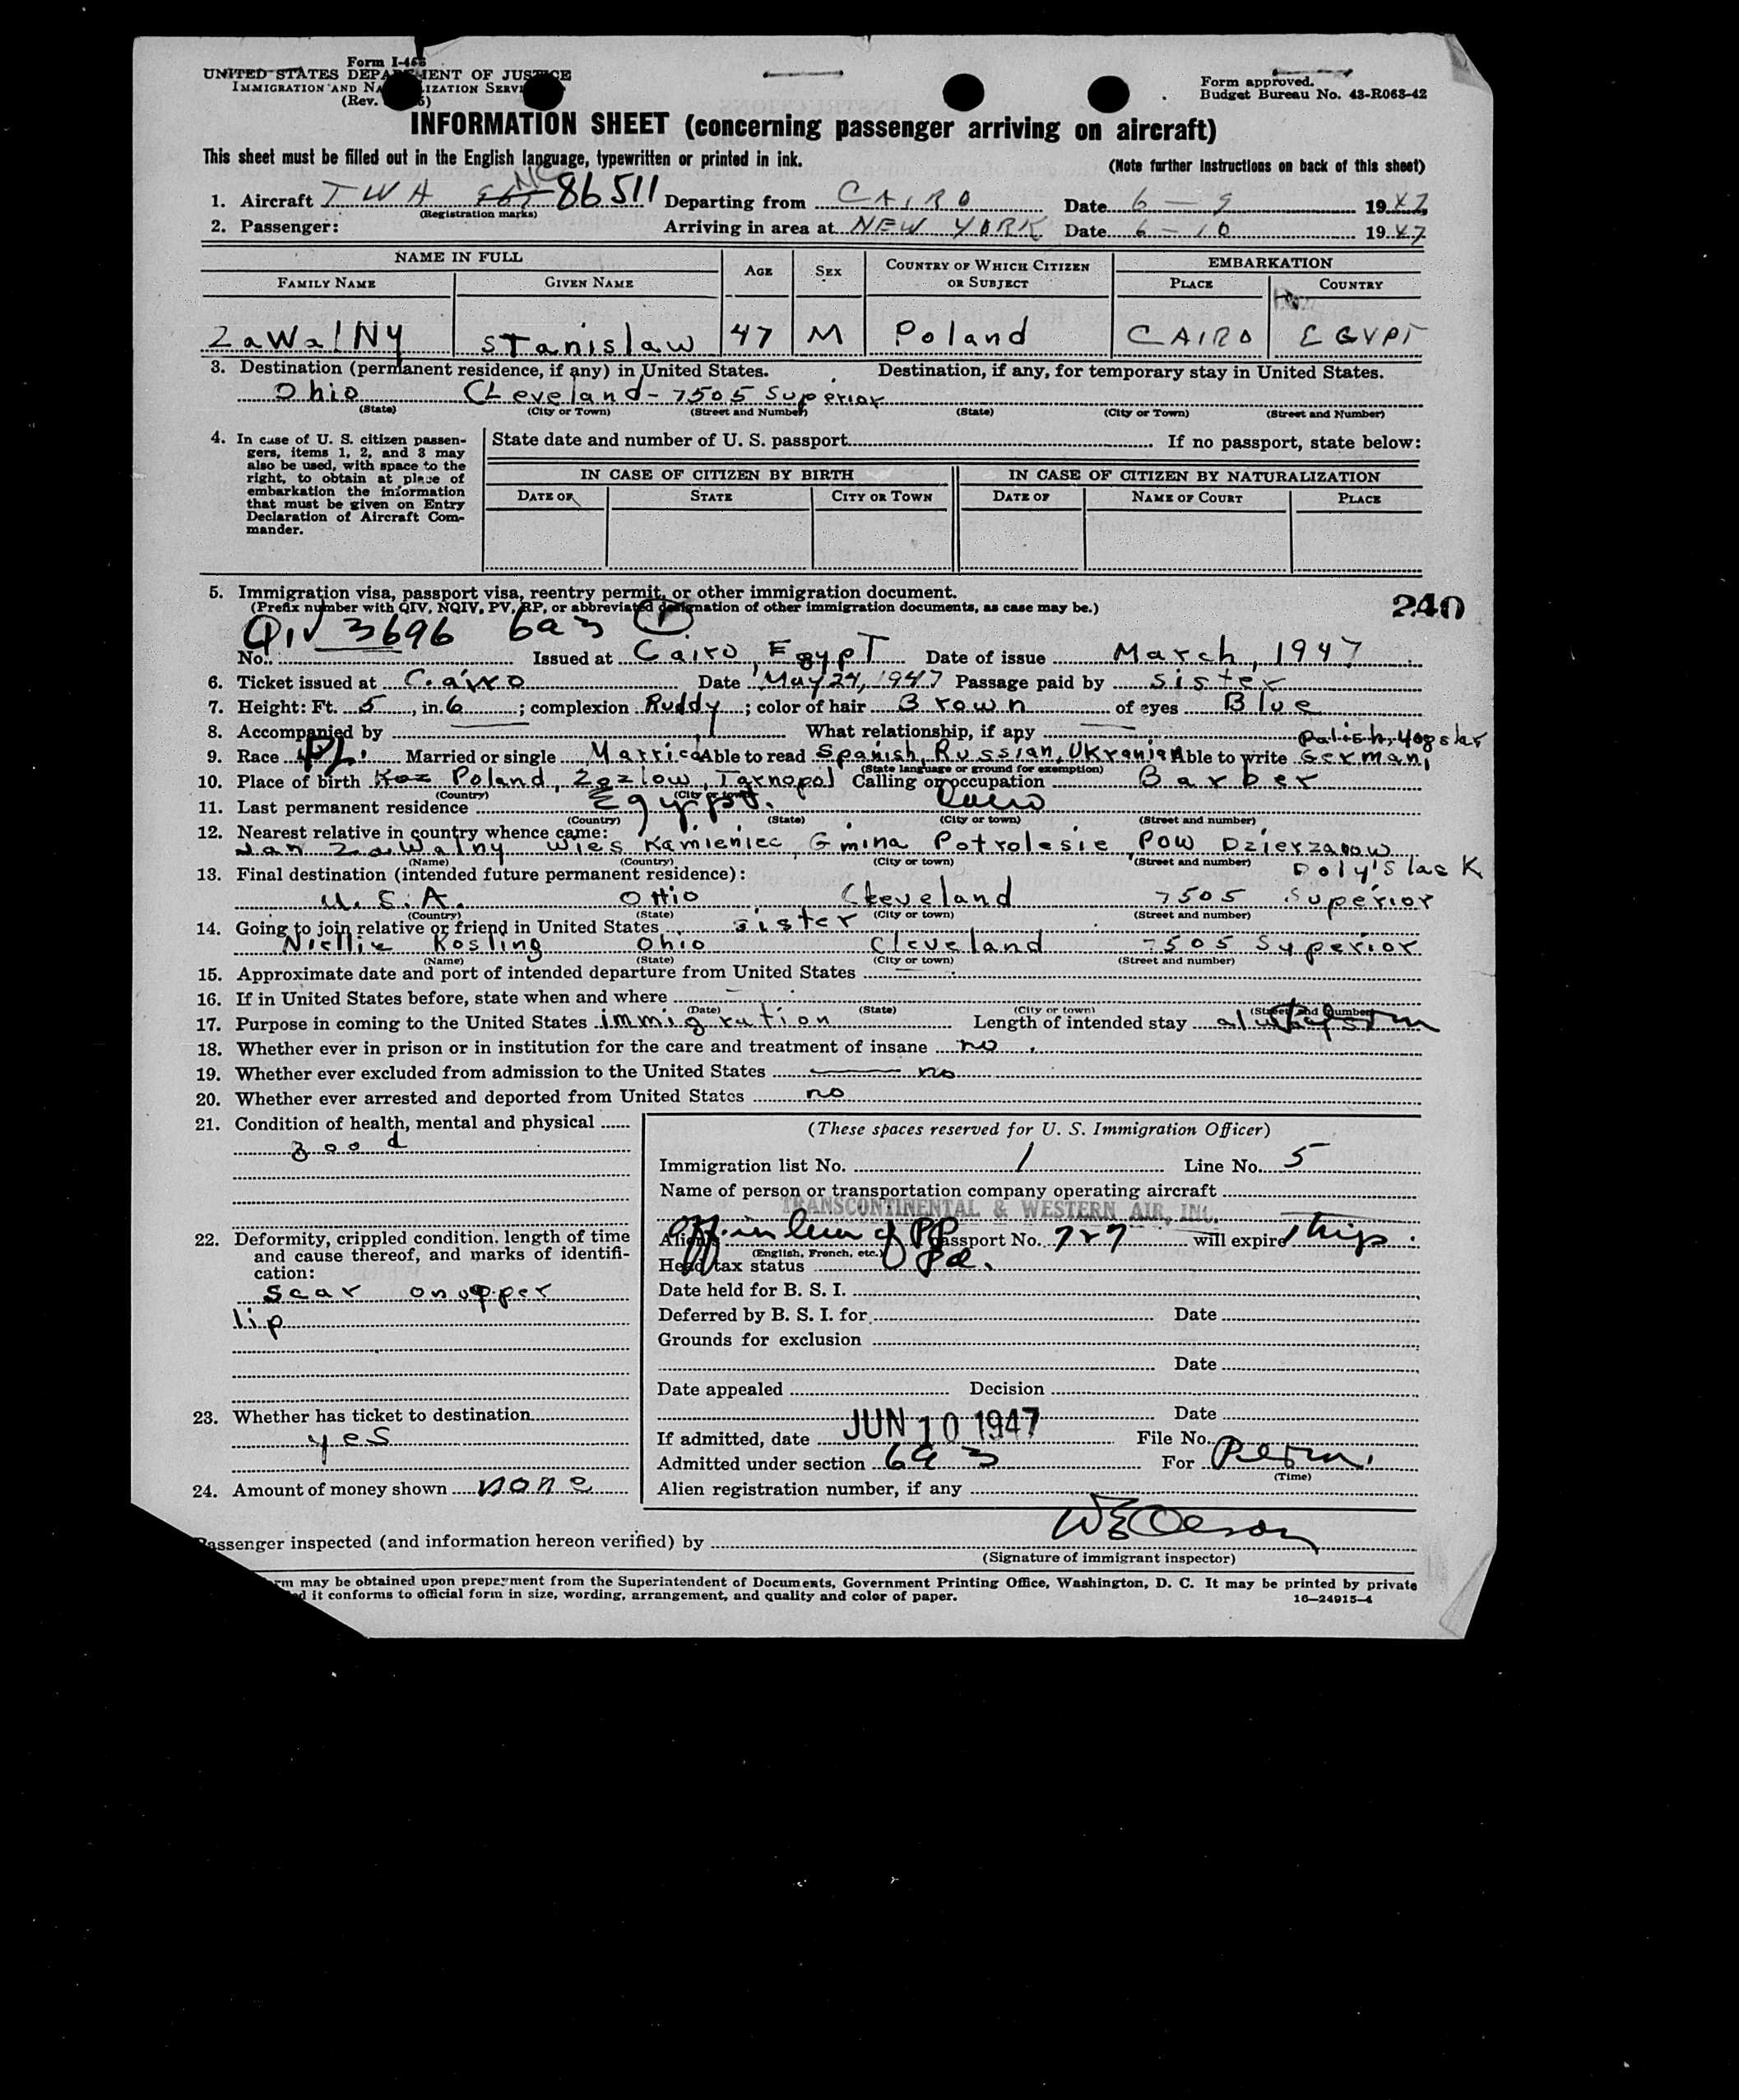 Form I-466
UNITED STATES DEPARTMENT OF JUSTICE
IMMIGRATION AND NATURALIZATION SERVICE
(Rev.
Form approved.
Budget Bureau No. 43-R063-42
INFORMATION SHEET (concerning passenger arriving on aircraft)
This sheet must be filled out in the English language, typewritten or printed in ink.
(Note further instructions on back of this sheet)
1. Aircraft TWA NC 86511 Departing from CAIRO Date 6-9 1947
(Registration marks)
2. Passenger: Arriving in area at NEW YORK Date 6-10 1947
NAME IN FULL AGE SEX COUNTRY OF WHICH CITIZEN OR SUBJECT EMBARKATION
FAMILY NAME GIVEN NAME PLACE COUNTRY
ZaWalNy STanislaw 47 M Poland CAIRO EGYPT
3. Destination (permanent residence, if any) in United States. Destination, if any, for temporary stay in United States.
Ohio CLeveland - 7505 Superior
(State) (City or Town) (Street and Number) (State) (City or Town) (Street and Number)
4. In case of U. S. citizen passengers, items 1, 2, and 3 may also be used, with space to the right, to obtain at place of embarkation the information that must be given on Entry Declaration of Aircraft Commander.
State date and number of U. S. passport If no passport, state below:
IN CASE OF CITIZEN BY BIRTH IN CASE OF CITIZEN BY NATURALIZATION
DATE OF STATE CITY OR TOWN DATE OF NAME OF COURT PLACE
5. Immigration visa, passport visa, reentry permit, or other immigration document.
(Prefix number with QIV, NQIV, PV, RP, or abbreviated designation of other immigration documents, as case may be.)
240
QIV 3696 6a3 P
No. Issued at Cairo, EgypT Date of issue March, 1947
6. Ticket issued at Cairo Date May 24, 1947 Passage paid by sister
7. Height: Ft. 5, in. 6; complexion Ruddy; color of hair Brown of eyes Blue
8. Accompanied by What relationship, if any
polish, yogslar
9. Race PL. Married or single Married Able to read Spanish, Russian, Ukranian Able to write German,
(State language or ground for exemption)
10. Place of birth Poland, Zozlow, Tarnopol Calling or occupation Barber
(Country) (City or town)
11. Last permanent residence Egypt. Cairo
(Country) (State) (City or town) (Street and number)
12. Nearest relative in country whence came:
Jan Zawalny Wies Kamieniec, Gmina Potrolesie, POW Dzierzanow
(Name) (Country) (City or town) (Street and number)
Doly's lacK
13. Final destination (intended future permanent residence):
U.S.A. OHio Cleveland 7505 Superior
(Country) (State) (City or town) (Street and number)
14. Going to join relative or friend in United States sister
Niellie Kosling Ohio Cleveland 7505 Superior
(Name) (State) (City or town) (Street and number)
15. Approximate date and port of intended departure from United States
16. If in United States before, state when and where
(Date) (State) (City or town) (Street and number)
17. Purpose in coming to the United States immigration Length of intended stay always
18. Whether ever in prison or in institution for the care and treatment of insane no
19. Whether ever excluded from admission to the United States no
20. Whether ever arrested and deported from United States no
21. Condition of health, mental and physical
good
22. Deformity, crippled condition, length of time and cause thereof, and marks of identification:
scar on upper
lip
23. Whether has ticket to destination
yes
24. Amount of money shown none
(These spaces reserved for U. S. Immigration Officer)
Immigration list No. 1 Line No. 5
Name of person or transportation company operating aircraft
TRANSCONTINENTAL & WESTERN AIR, INC.
Alien's Aff in lieu of PP Passport No. 727 will expire 1 trip
(English, French, etc.)
Head tax status Pd.
Date held for B. S. I.
Deferred by B. S. I. for Date
Grounds for exclusion
Date
Date appealed Decision
Date
If admitted, date JUN 10 1947 File No.
Admitted under section 6a3 For Perm.
(Time)
Alien registration number, if any
Passenger inspected (and information hereon verified) by W E Oleson
(Signature of immigrant inspector)
rm may be obtained upon prepayment from the Superintendent of Documents, Government Printing Office, Washington, D. C. It may be printed by private
d it conforms to official form in size, wording, arrangement, and quality and color of paper.
16—24915-4